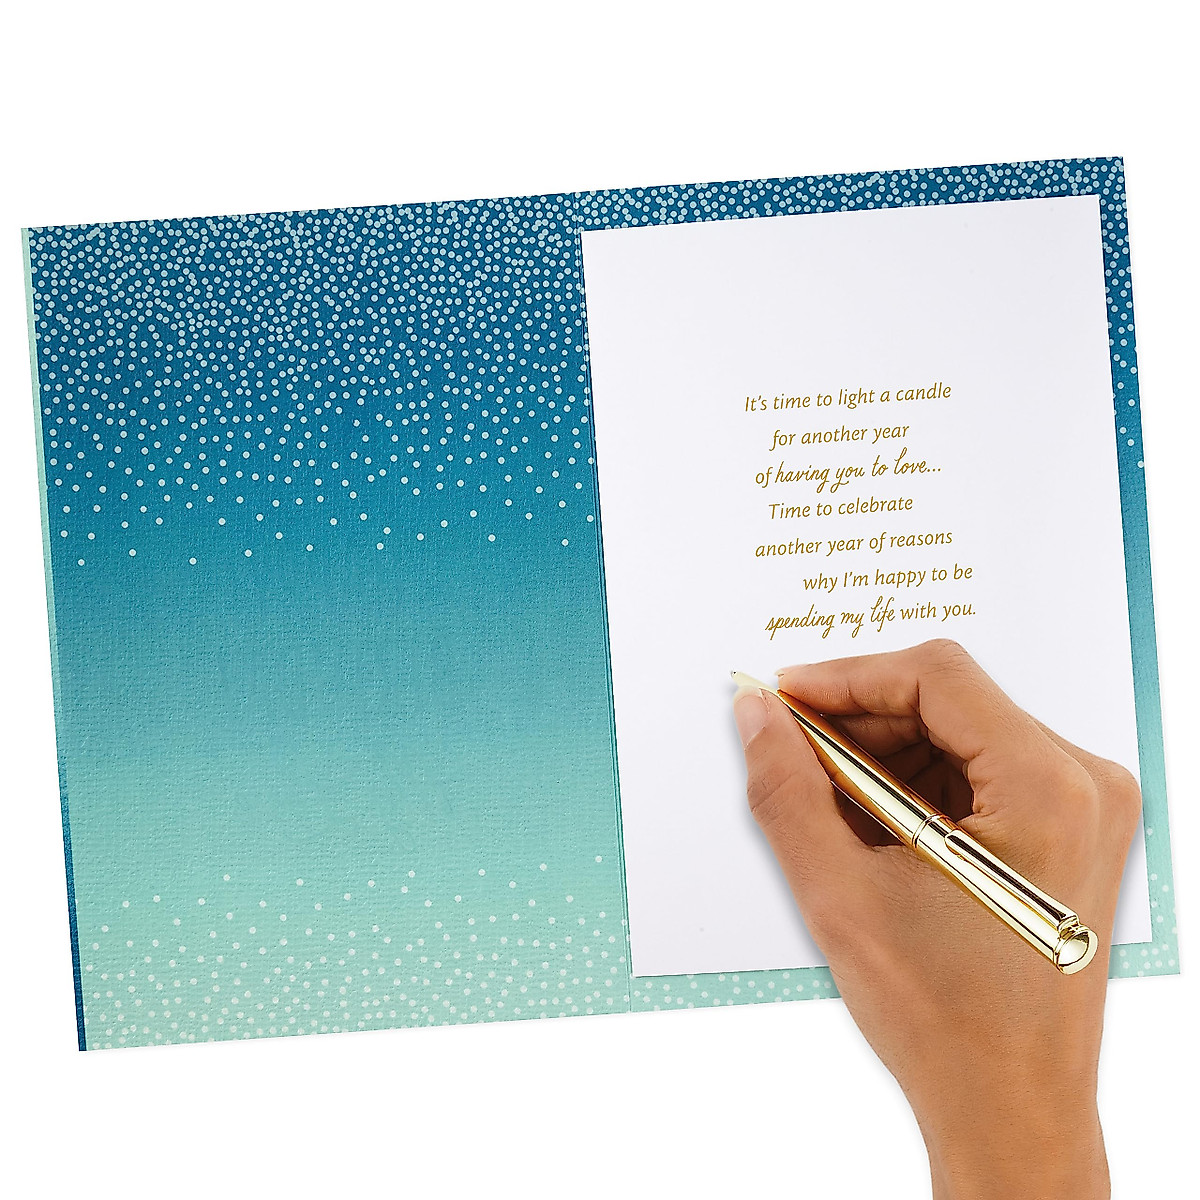 It's time to light a candle
for another year
of having you to love...
Time to celebrate
another year of reasons
why I'm happy to be
spending my life with you.